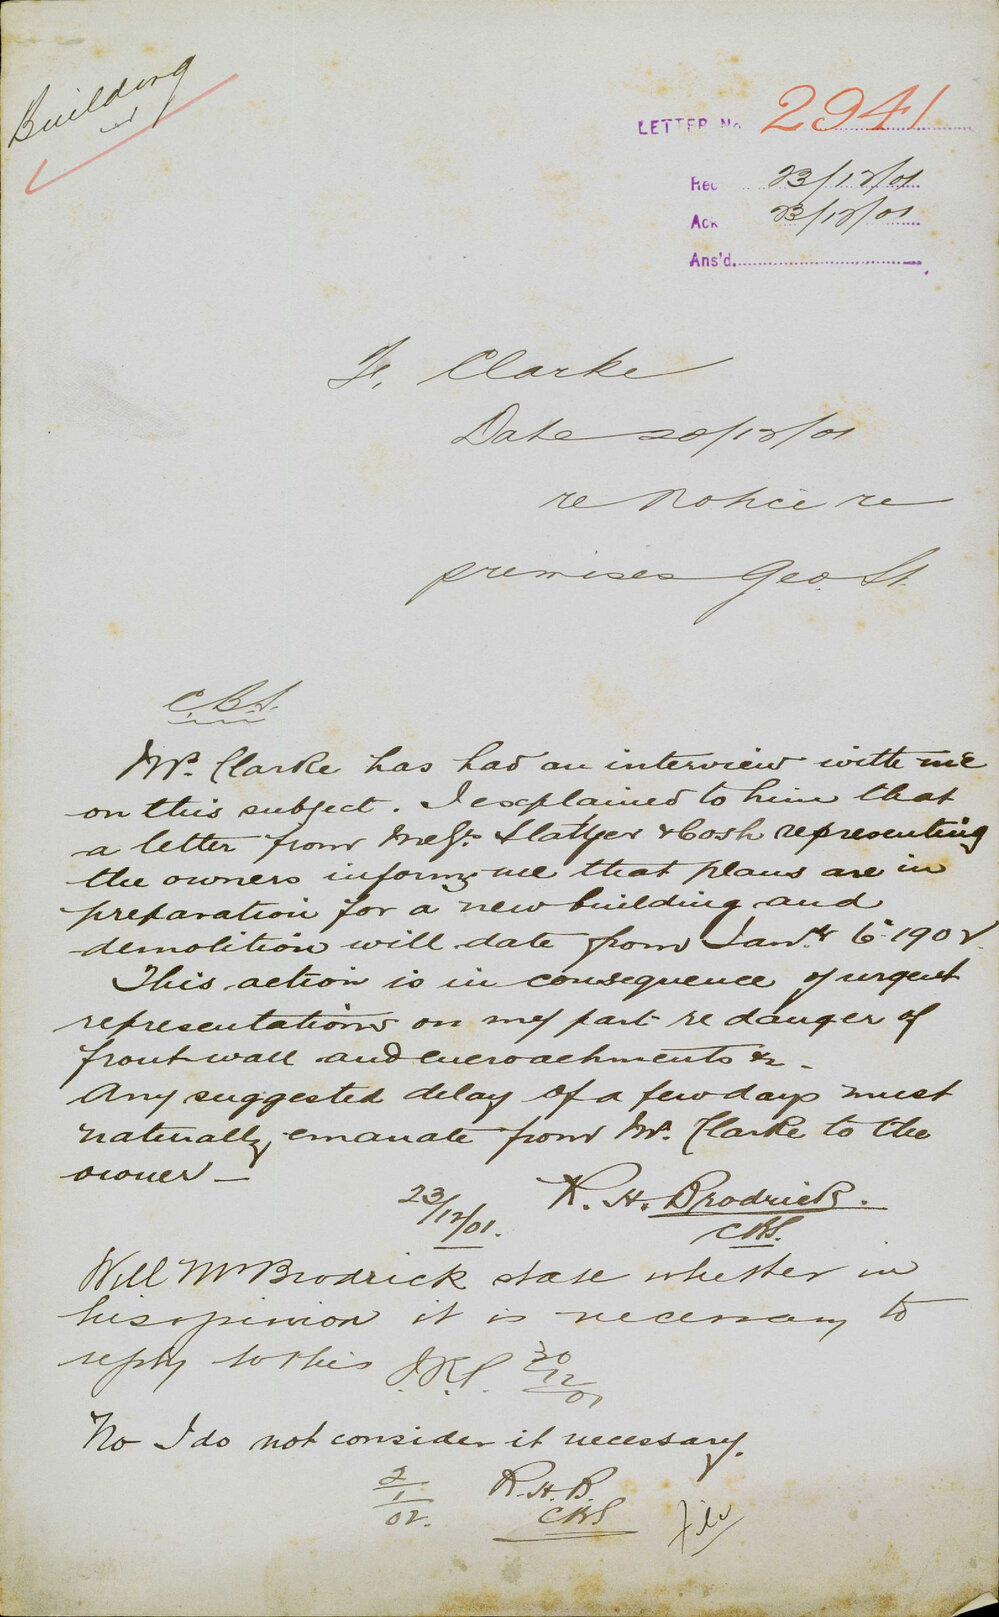 Building
LETTER No 2941
Rec 23/12/01
Ack 23/12/01
Ans'd.
F. Clarke
Date 20/12/01
re Notice re
premises Geo. St
C.B.S.
Mr. Clarke has had an interview with me
on this subject. I explained to him that
a letter from Messrs Slatyer & Cosh representing
the owners informs me that plans are in
preparation for a new building and
demolition will date from Jany 6th 1902
This action is in consequence of urgent
representations on my part re danger of
front wall and encroachments &c.
Any suggested delay of a few days must
naturally emanate from Mr. Clarke to the
owner —
23/12/01. R. H. Brodrick.
CBS.
Will Mr Brodrick state whether in
his opinion it is necessary to
reply to this 30/12/01
No I do not consider it necessary.
2/1/02. R.H.B.
CBS
File